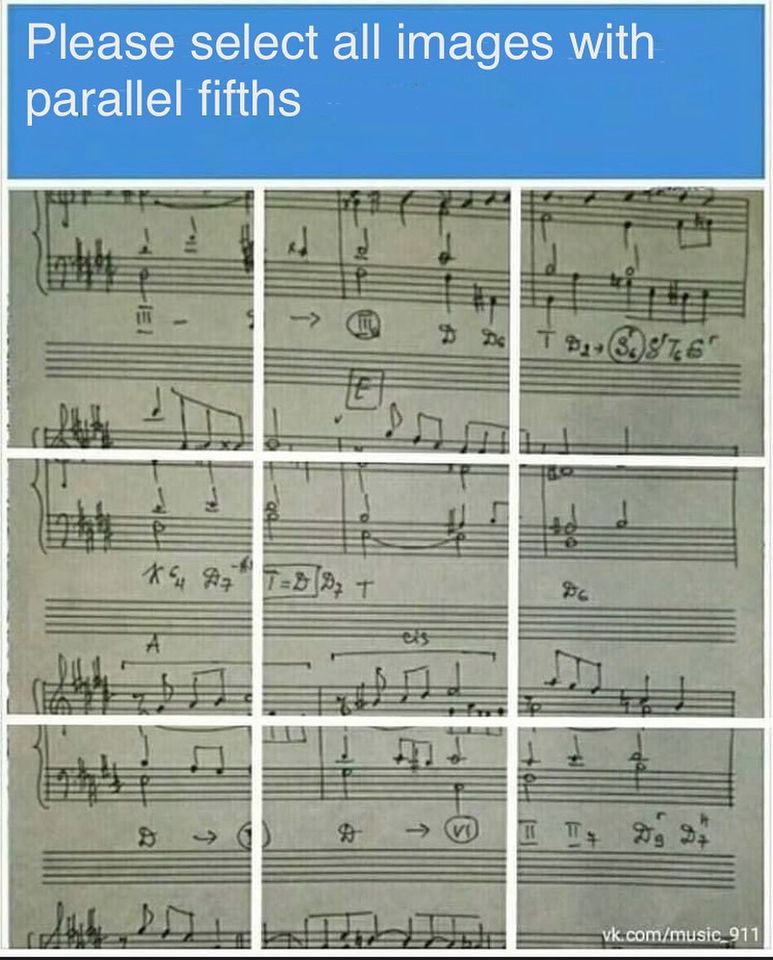 Please select all images with
parallel fifths
III – → III D D6 T D2 → S6
E
K 6/4 D7 T = D D7 T D6
A cis
D → D → VI II II7 D9 D7
vk.com/music_911